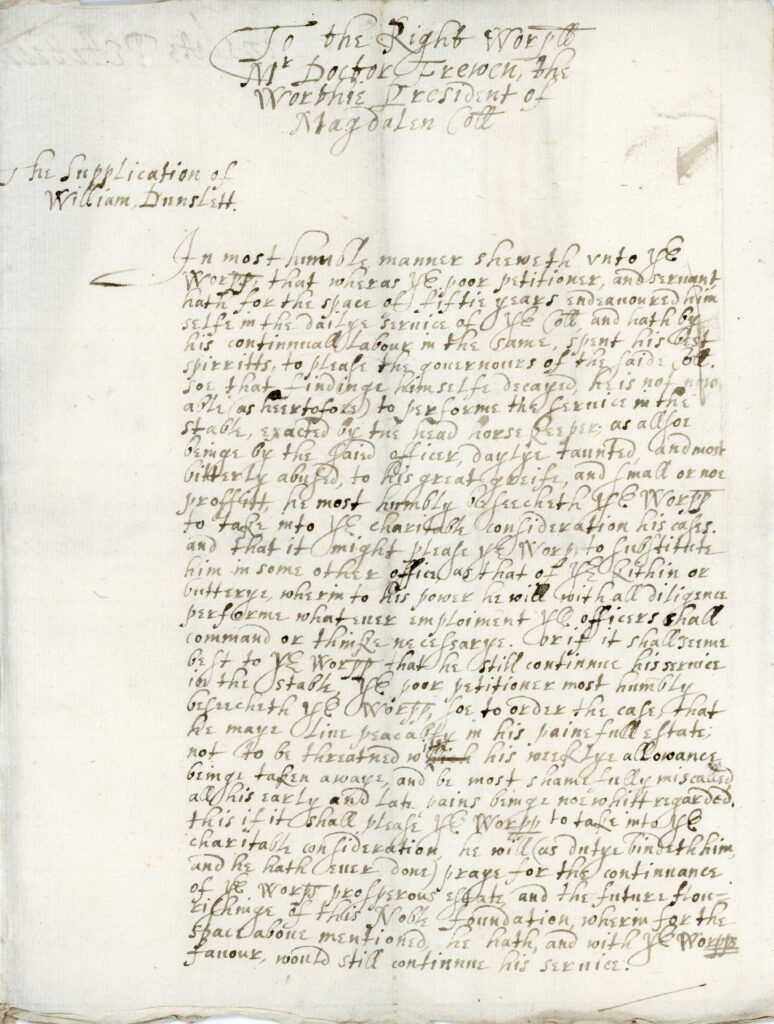 To the Right Worpll
Mr Doctor Frewen, the
Worthie President of
Magdalen Coll
The Supplication of
William, Dunslett.
In most humble manner sheweth vnto yr
Worpp, that wheras yr poor petitioner, and servant
hath for the space of fiftie years endeauoured him
selfe in the dailye service of yr Coll and hath by
his continnuall Labour in the same, spent his best
spirritts, to please the governours of the saide Coll.
soe that findinge himselfe decayed, he is not now
able (as heertofore) to performe the service in the
stable, exacted by the head horse keeper: as allsoe
beinge by the saied officer, daylye taunted, and most
bitterly abused, to his great greife, and small or noe
proffitt, he most humbly beseecheth yr Worpp
to take into yr charitable consideration his cases.
and that it might please yr Worp, to substitute
him in some other office, as that of yr Kithin or
butterye, wherin to his power he will with all diligence
performe whatever emploiment yr officers shall
command or thinke necessarye. Or if it shall seeme
best to yr Worpp that he still continnue his service
in the stable, yr poor petitioner most humbly
beseecheth yr Worpp, soe to order the case, that
he maye live peacably in his painefull estate;
not to be threatned with his weeklye allowance
beinge taken awaye, and be most shamefully miscalled,
all his early and late pains beinge noe whitt regarded.
this if it shall please yr Worpp to take into yr
charitable consideration, he will (as dutye bindeth him,
and he hath ever done) praye for the continuance
of yr Worpp prosperous estate, and the future flou-
rishinge of this Noble foundation, wherin for the
space above mentioned, he hath, and with yr Worpps
favour, would still continnue his service.